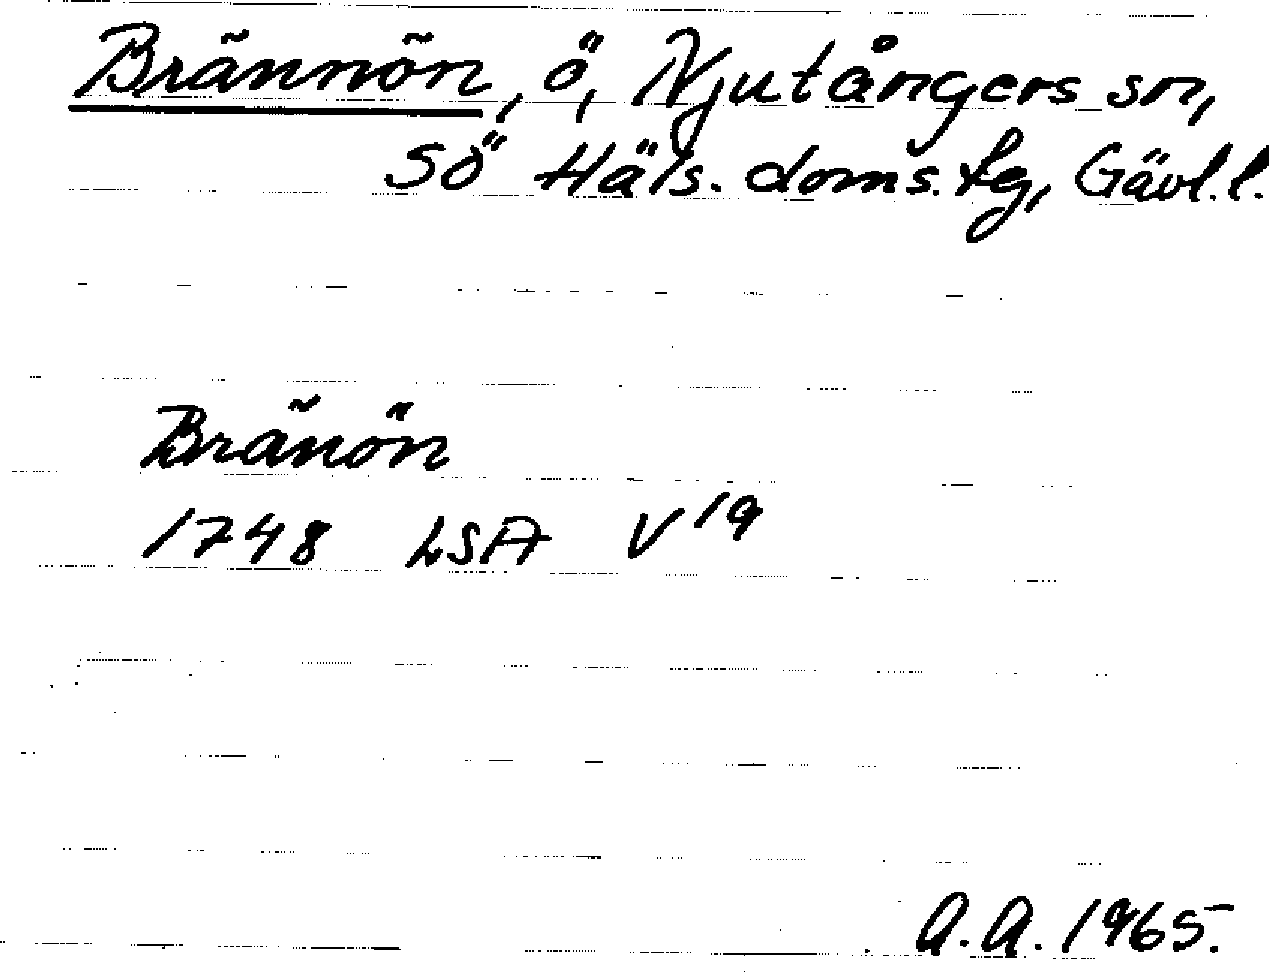 Brännön, ö, Njutångers sn,
Sö Häls. doms. fg, Gävl. l.
Bränön
1748 LSA V 19
A.A. 1965.